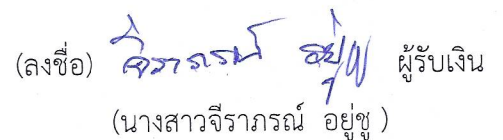 (ลงชื่อ) จีราภรณ์ อยู่ชู ผู้รับเงิน
(นางสาวจีราภรณ์ อยู่ชู )